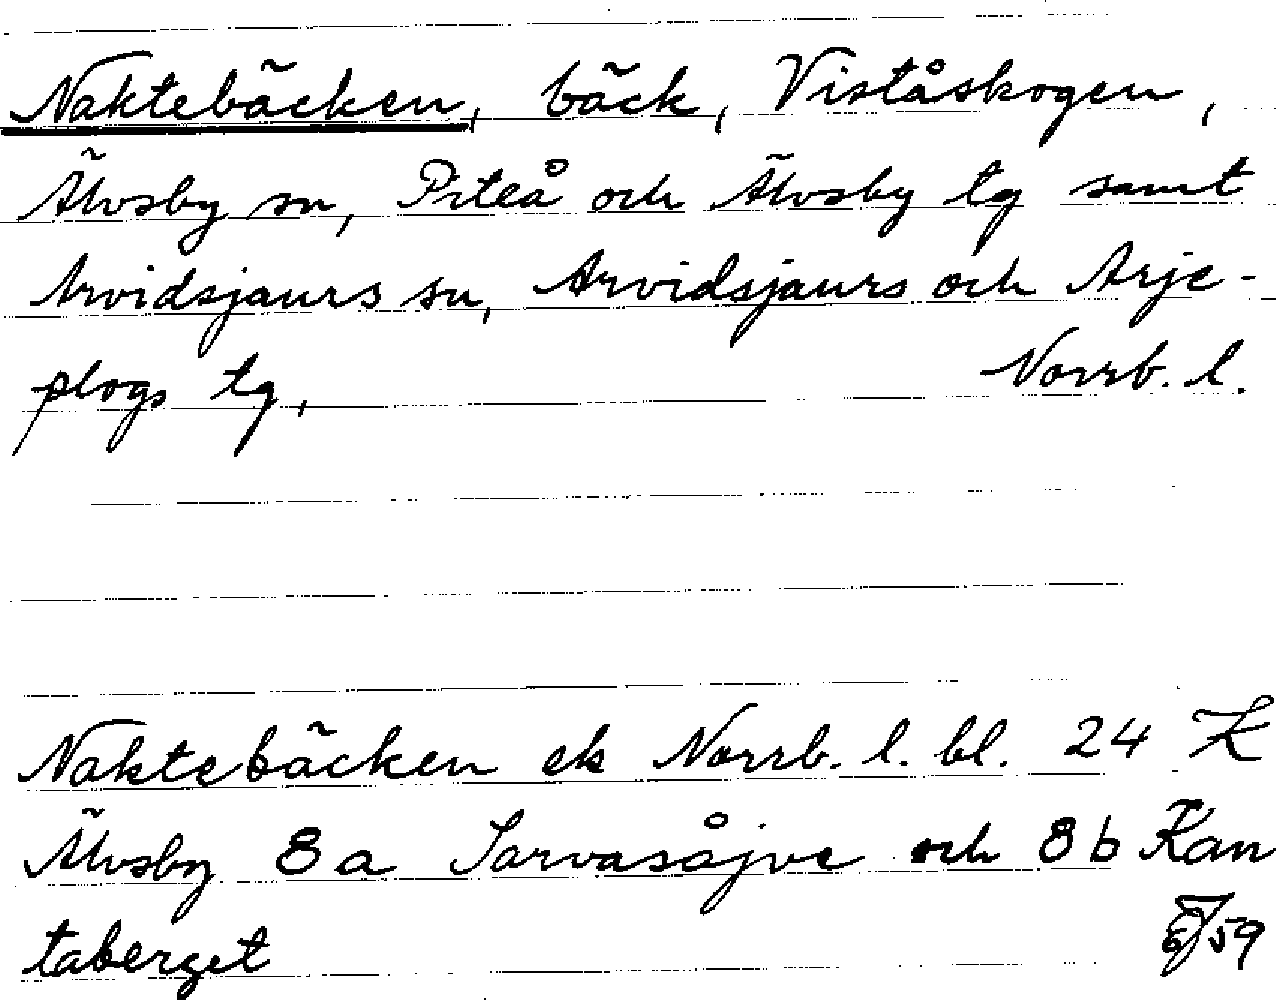 Naktebäcken, bäck, Viståskogen,
Älvsby sn, Piteå och Älvsby tg samt
Arvidsjaurs sn, Arvidsjaurs och Arje-
plogs tg, Norrb. l.
Naktebäcken ek Norrb. l. bl. 24
Älvsby 8a Sarvasåjve och 8b Kan
taberget 59